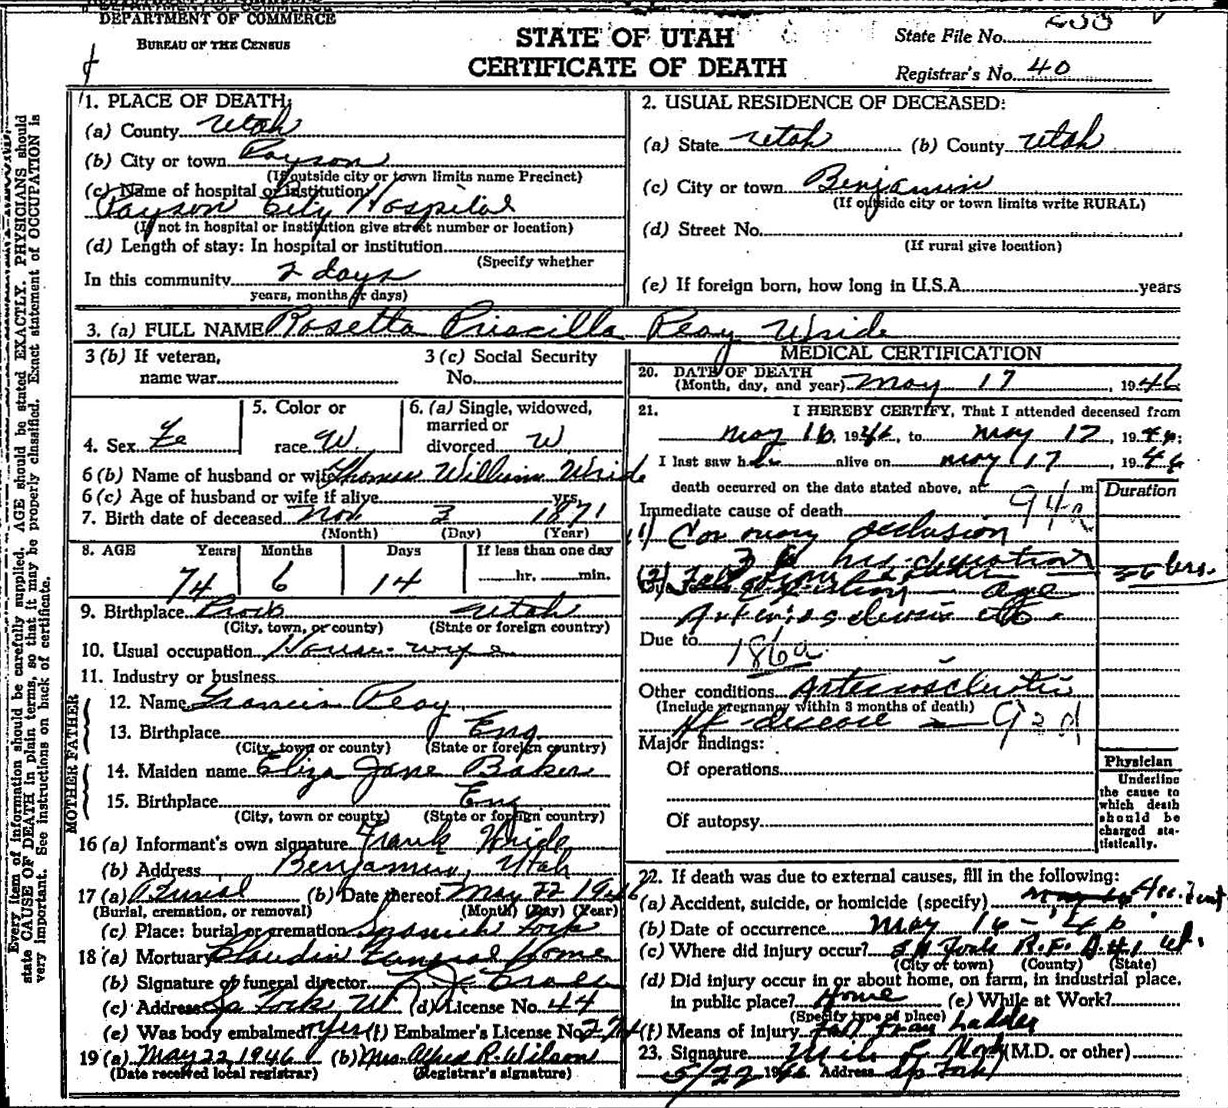 DEPARTMENT OF COMMERCE
BUREAU OF THE CENSUS
STATE OF UTAH
CERTIFICATE OF DEATH
State File No.
Registrar's No. 40
Every item of information should be carefully supplied. AGE should be stated EXACTLY. PHYSICIANS should
state CAUSE OF DEATH in plain terms, so that it may be properly classified. Exact statement of OCCUPATION is
very important. See instructions on back of certificate.
1. PLACE OF DEATH:
(a) County Utah
(b) City or town Payson
(If outside city or town limits name Precinct)
(c) Name of hospital or institution:
Payson City Hospital
(If not in hospital or institution give street number or location)
(d) Length of stay: In hospital or institution
(Specify whether
In this community 2 days
years, months or days)
2. USUAL RESIDENCE OF DECEASED:
(a) State Utah (b) County Utah
(c) City or town Benjamin
(If outside city or town limits write RURAL)
(d) Street No.
(If rural give location)
(e) If foreign born, how long in U.S.A. years
3. (a) FULL NAME Rosetta Priscilla Peay Wride
3 (b) If veteran,
name war
3 (c) Social Security
No.
4. Sex Fe
5. Color or
race W
6. (a) Single, widowed,
married or
divorced W
6 (b) Name of husband or wife Thomas William Wride
6 (c) Age of husband or wife if alive yrs.
7. Birth date of deceased Nov. 3 1871
(Month) (Day) (Year)
8. AGE Years Months Days If less than one day
74 6 14 hr. min.
9. Birthplace Provo Utah
(City, town, or county) (State or foreign country)
10. Usual occupation House-wife
11. Industry or business
FATHER
12. Name Francis Peay
13. Birthplace Eng
(City, town or county) (State or foreign country)
MOTHER
14. Maiden name Eliza Jane Baker
15. Birthplace Eng
(City, town or county) (State or foreign country)
16 (a) Informant's own signature Frank Wride
(b) Address Benjamin, Utah
17 (a) Burial (b) Date thereof May 22 1946
(Burial, cremation, or removal) (Month) (Day) (Year)
(c) Place: burial or cremation Spanish Fork
18 (a) Mortuary Claudin Funeral Home
(b) Signature of funeral director
(c) Address Sp Fork Ut (d) License No. 44
(e) Was body embalmed? Yes (f) Embalmer's License No. 274
19 (a) May 22 1946 (b) Mrs. Alfred R. Wilson
(Date received local registrar) (Registrar's signature)
MEDICAL CERTIFICATION
20. DATE OF DEATH
(Month, day, and year) May 17, 1946
21. I HEREBY CERTIFY, That I attended deceased from
May 16, 1946, to May 17, 1946;
I last saw h alive on May 17, 1946
death occurred on the date stated above, at m
Duration
Immediate cause of death 94a
(1) Coronary occlusion
36 hrs.
age
Arteriosclerosis etc
Due to
186a
Other conditions Arteriosclerotic
(Include pregnancy within 3 months of death)
Ht disease 93d
Major findings:
Of operations
Of autopsy
Physician
Underline
the cause to
which death
should be
charged sta-
tistically.
22. If death was due to external causes, fill in the following:
(a) Accident, suicide, or homicide (specify) Accident
(b) Date of occurrence May 16 - '46
(c) Where did injury occur? Sp Fork R.F.D.#1 Ut.
(City or town) (County) (State)
(d) Did injury occur in or about home, on farm, in industrial place,
in public place? Home (e) While at Work?
(Specify type of place)
(f) Means of injury Fall from Ladder
23. Signature (M.D. or other)
5/22 1946 Address Sp Fork